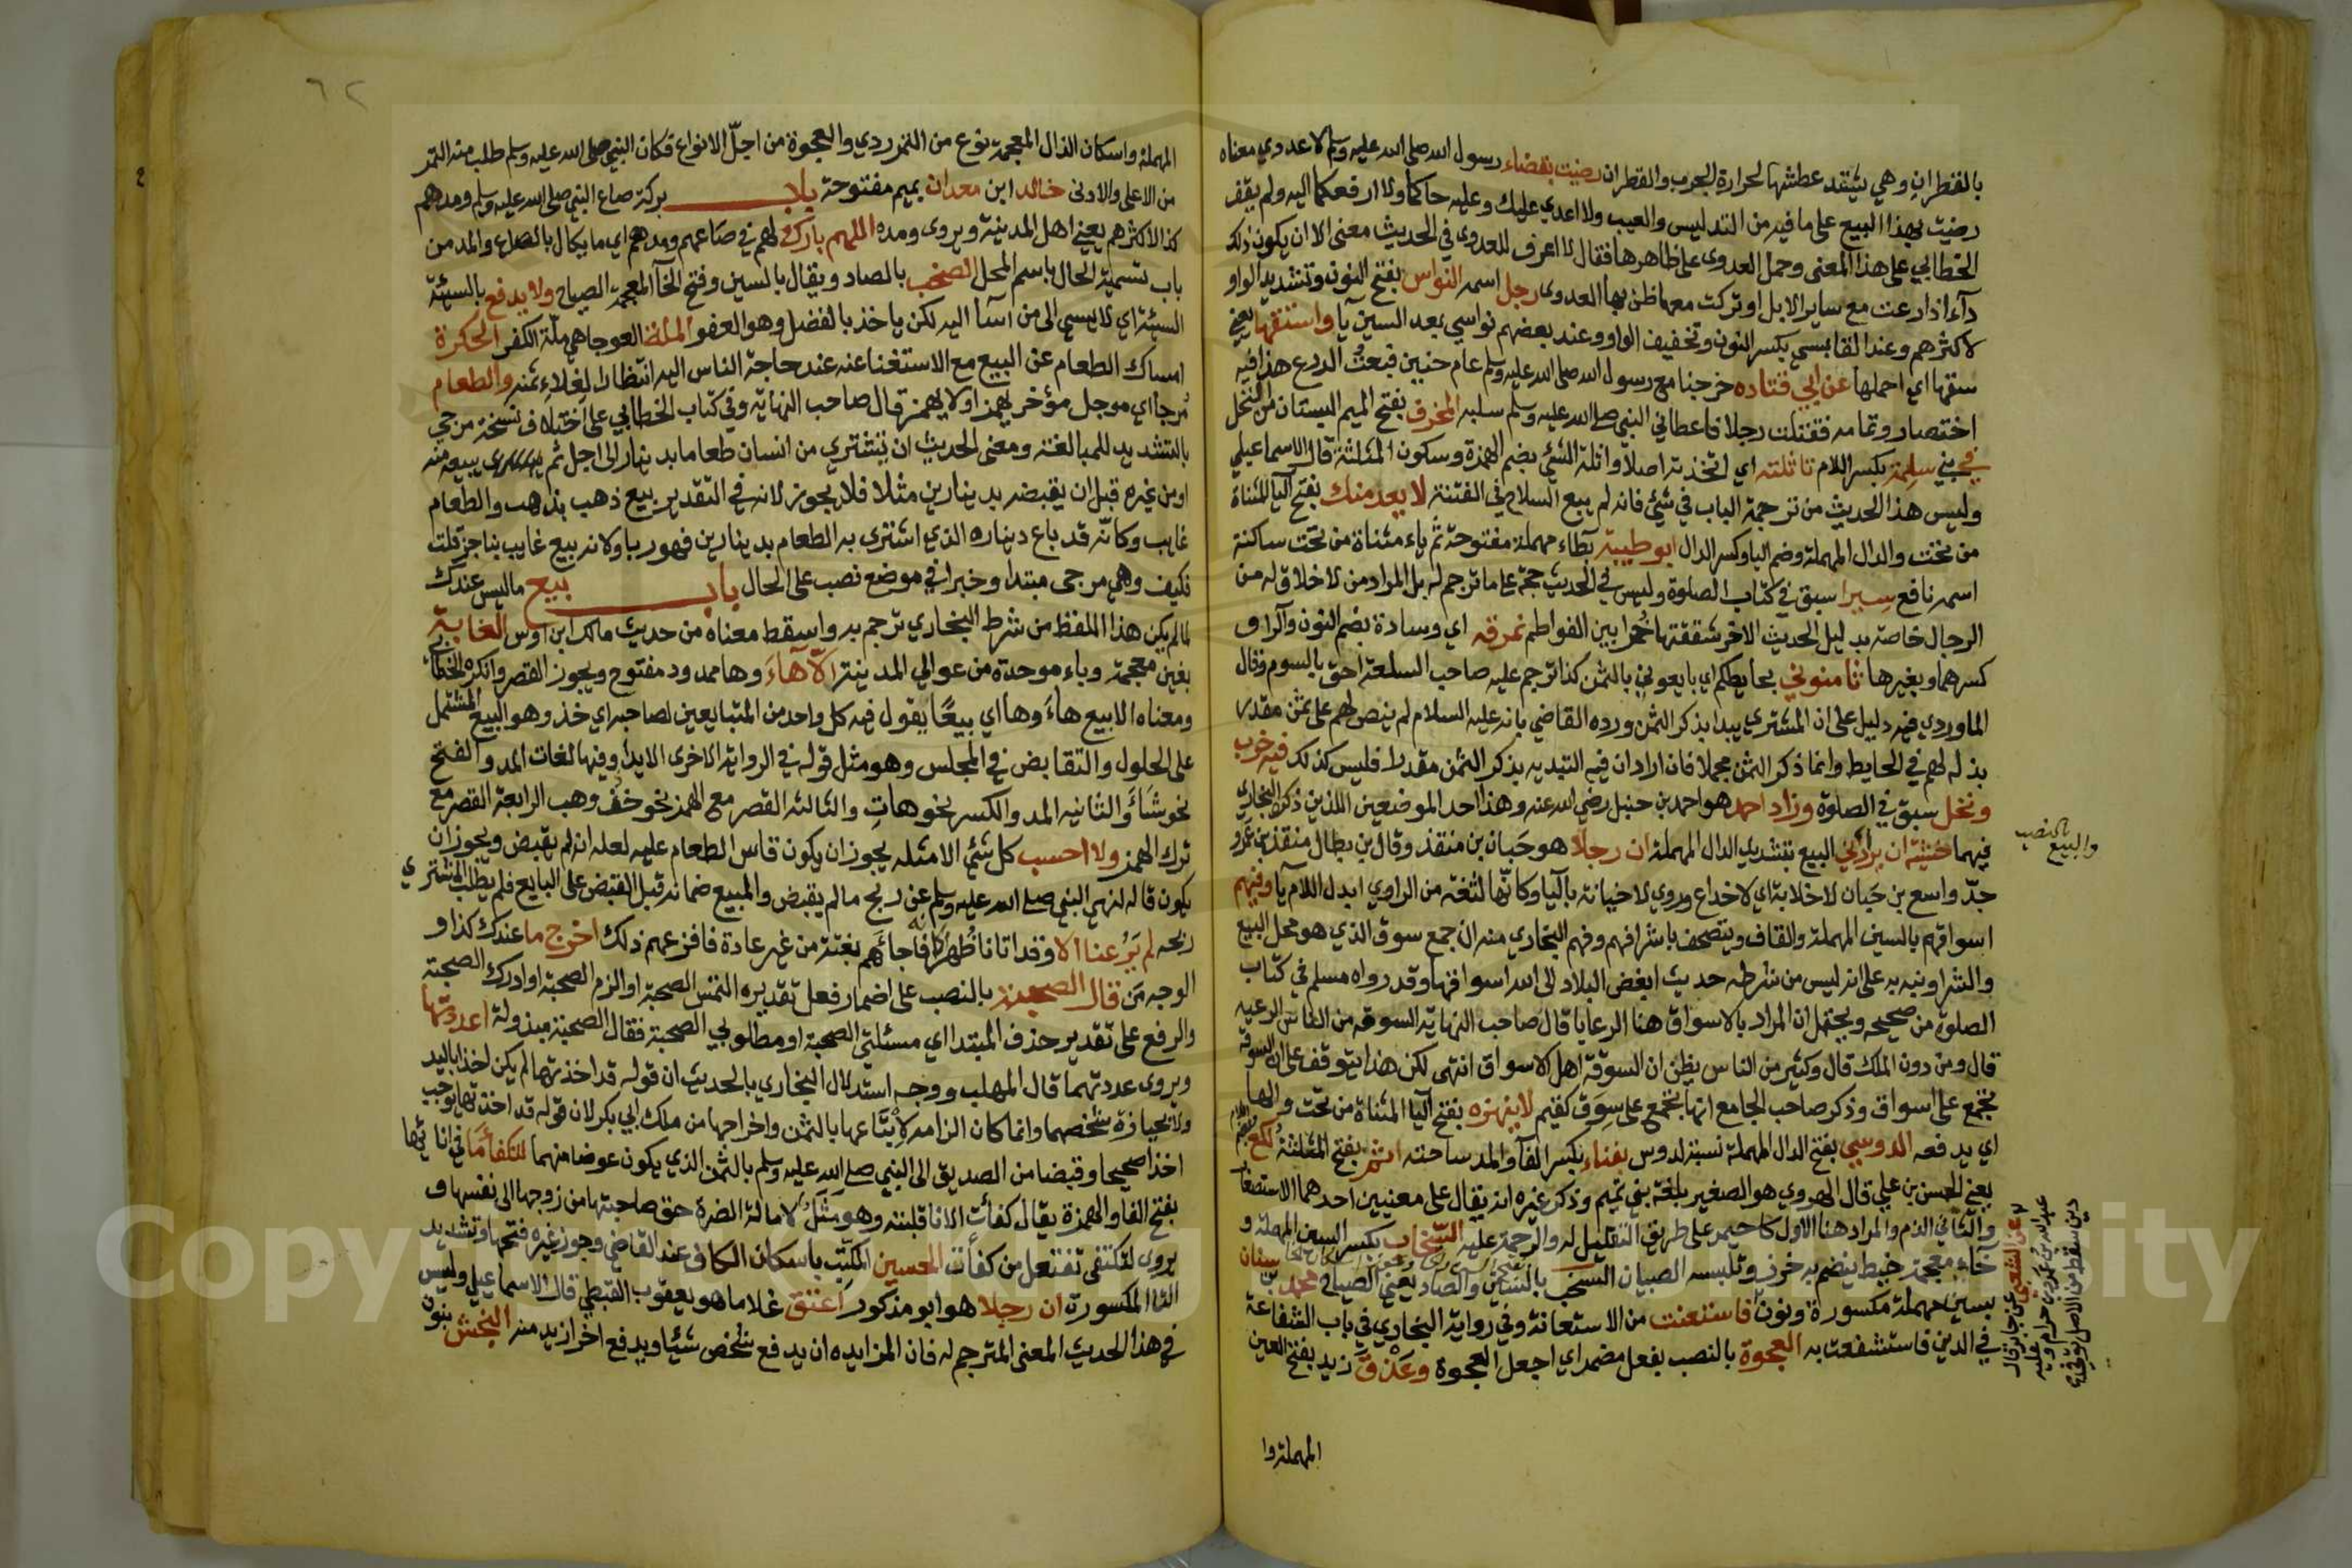 بالقطران وهي يشتد عطشها لحرارة الجرب والقطران رضيت بقضاء رسول الله صلى الله عليه وسلم لا عدوي معناه
رضيت بهذا البيع على ما فيه من التدليس والعيب ولا اعدي عليك وعليه حاكما ولا ارفعكما اليه ولم يقف
الخطابي على هذا المعنى وحمل العدوى على ظاهرها فقال لا اعرف للعدوى في الحديث معنى الا ان يكون ذلك
داء اذا رعت مع ساير الابل او تركت معها ظن بها العدوى رجل اسمه النواس بفتح النون وتشديد الواو
لاكثرهم وعند القابسي بكسر النون وتخفيف الواو وعند بعضهم نواسي بعد السين يا واستقها يعني
سقها اي احملها عن ابي قتاده خرجنا مع رسول الله صلى الله عليه وسلم عام حنين فبعت الدرع هذا فيه
اختصار وتمامه فقتلت رجلا فاعطاني النبي صلى الله عليه وسلم سلبه المخرف بفتح الميم البستان من النخل
في بني سلمة بكسر اللام تاثلته اي اتخذته اصلا واثلة الشئ بضم الهمزة وسكون المثلثة قال الاسماعيلي
وليس هذا الحديث من ترجمة الباب في شئ فانه لم يبع السلاح في الفتنة لا يعدمنك بفتح اليا المثناة
من تحت والدال المهملة وضم اليا وكسر الدال ابو طيبة بطاء مهملة مفتوحة ثم ياء مثناة من تحت ساكنة
اسمه نافع سيرا سبق في كتاب الصلوة وليس في الحديث حجة على ما ترجم له بل المراد من لا خلاق له من
الرجال خاصة بدليل الحديث الاخر شققتها خمرا بين الفواطم نمرقه اي وسادة بضم النون والراء و
كسرهما وبغيرها ثامنوني بحايطكم اي بايعوني بالثمن كذا ترجم عليه صاحب السلعة احق بالسوم وقال
الماوردي فيه دليل على ان المشتري يبدا بذكر الثمن ورده القاضي بانه عليه السلام لم ينص لهم على ثمن مقدر
بذله لهم في الحايط وانما ذكر الثمن مجملا فان اراد ان فيه التبديه بذكر الثمن مقدرا فليس كذلك فيه خرب
ونخل سبق في الصلوة وزاد احمد هو احمد بن حنبل رضي الله عنه وهذا احد الموضعين اللذين ذكره البخاري
فيهما خشية ان يرادني البيع بتشديد الدال المهملة ان رجلا هو حبان بن منقذ وقال بن بطال منقذ بن عمرو
جد واسع بن حبان لا خلابة اي لا خداع وروي لا خيانة باليا وكانها لثغة من الراوي ابدل اللام يا وفيهم
اسواقهم بالسين المهملة والقاف ويتصحف باشرافهم وفهم البخاري منه ان جمع سوق الذي هو محل البيع
والشرا ونبه به على انه ليس من شرطه حديث ابغض البلاد الى الله اسواقها وقد رواه مسلم في كتاب
الصلوة من صحيحه ويحتمل ان المراد بالاسواق هنا الرعايا قال صاحب النهاية السوقه من الناس الرعيه
قال ومن دون الملك قال وكثير من الناس يظن ان السوقة اهل الاسواق انتهى لكن هذا يتوقف على ان السوقة
تجمع على اسواق وذكر صاحب الجامع انها تجمع على سوق كقيم لا ينهزه بفتح اليا المثناة من تحت والها
اي يدفعه الدوسي بفتح الدال المهملة نسبة لدوس بفناء بكسر الفا والمد ساحته اثم بفتح المثلثة لكع
يعني الحسن بن علي قال الهروي هو الصغير بلغة بني تميم وذكر غيره انه يقال على معنيين احدهما الاستصغار
والثاني الذم والمراد هنا الاول كاحيمر على طريق التقليل له والرحمة عليه السخاب بكسر السين المهملة و
خاء معجمة خيط ينضم به خرز وتلبسه الصبيان السخب بالسين والصاد يعني الصياح محمد بن سنان
بسين مهملة مكسورة ونون فاستعنت من الاستعانة وفي رواية البخاري في باب الشفاعة
في الدين فاستشفعت به العجوة بالنصب بفعل مضمر اي اجعل العجوة وعذق زيد بفتح العين
المهملة وا
بالنصب
والبيع
عن الشعبي عن جابر قال
٦٢
المهملة واسكان الذال المعجمة نوع من التمر ردي والعجوة من اجل الانواع فكان النبي صلى الله عليه وسلم طلب منه التمر
من الاعلى والادنى خالد ابن معدان بميم مفتوحة باب بركة صاع النبي صلى الله عليه وسلم ومدهم
كذا لاكثرهم يعني اهل المدينة ويروى ومده اللهم بارك لهم في صاعهم ومدهم اي ما يكال بالصاع والمد من
باب تسمية الحال باسم المحل الصخب بالصاد ويقال بالسين وفتح الخا المعجمة الصياح ولا يدفع بالسيئة
السيئة اي لا يسي الى من اسا اليه لكن ياخذ بالفضل وهو العفو الملة العوجا هي ملة الكفر الحكرة
امساك الطعام عن البيع مع الاستغنا عنه عند حاجة الناس اليه انتظارا لغلاء ثمنه والطعام
مرجأ اي موجل مؤخر يهمز ولا يهمز قال صاحب النهاية وفي كتاب الخطابي على اختلاف نسخة مرجي
بالتشديد للمبالغة ومعنى الحديث ان يشتري من انسان طعاما بدينار الى اجل ثم يبيعه منه
او من غيره قبل ان يقبضه بدينارين مثلا فلا يجوز لانه في التقدير بيع ذهب بذهب والطعام
غايب وكانه قد باع ديناره الذي اشترى به الطعام بدينارين فهو ربا ولانه بيع غايب بناجز قلت
فكيف وهي مرجى مبتدا وخبرا في موضع نصب على الحال باب بيع ما ليس عندك
لما لم يكن هذا اللفظ من شرط البخاري ترجم به واسقط معناه من حديث مالك ابن اوس الغابة
بغين معجمة وباء موحدة من عوالي المدينة الا هاء وها ممدود مفتوح ويجوز القصر وانكره الخطابي
ومعناه الا بيع هاء وها اي بيعا يقول فيه كل واحد من المتبايعين لصاحبه اي خذ وهو البيع المشتمل
على الحلول والتقابض في المجلس وهو مثل قوله في الرواية الاخرى الا يدا وفيها لغات المد والفتح
نحو شاء والثانيه المد والكسر نحو هات والثالثه القصر مع الهمز نحو خف وهب الرابعة القصر مع
ترك الهمز ولا احسب كل شئ الا مثله يجوز ان يكون قاس الطعام عليه لعله انه لم يقبض ويجوز ان
يكون قاله لنهي النبي صلى الله عليه وسلم عن ربح ما لم يقبض والمبيع ضمانه قبل القبض على البايع فلم يطب للمشتري
ربحه لم يرعنا الا وقد اتانا ظهرا فاجاءهم بغتة من غير عادة فافزعهم ذلك اخرج ما عندك كذا و
الوجه من قال الصحبة بالنصب على اضمار فعل تقديره التمس الصحبة او الزم الصحبة او ادرك الصحبة
والرفع على تقدير حذف المبتدا اي مسئلتي الصحبة او مطلوبي الصحبة فقال الصحبة مبذولة اعددتها
ويروى عددتهما قال المهلب ووجه استدلال البخاري بالحديث ان قوله قد اخذتهما لم يكن اخذا باليد
ولا بحيازة شخصهما وانما كان الزامه لابتياعها بالثمن واخراجها من ملك ابي بكر لان قوله قد اخذتها يوجب
اخذا صحيحا وقبضا من الصديق الى النبي صلى الله عليه وسلم بالثمن الذي يكون عوضا منهما لتكفأ ما في انائها
بفتح الفا والهمزة يقال كفأت الانا قلبته وهو مثل لامالة الضرة حق صاحبتها من زوجها الى نفسها و
يروى لتكتفى تفتعل من كفأت الحسين المكتب باسكان الكاف عند القاضي وجوز غيره فتحها وتشديد
التا المكسورة ان رجلا هو ابو مذكور اعتق غلاما هو يعقوب القبطي قال الاسماعيلي وليس
في هذا الحديث المعنى المترجم له فان المزايده ان يدفع شخص شيئا ويدفع اخر ازيد منه النجش بنون